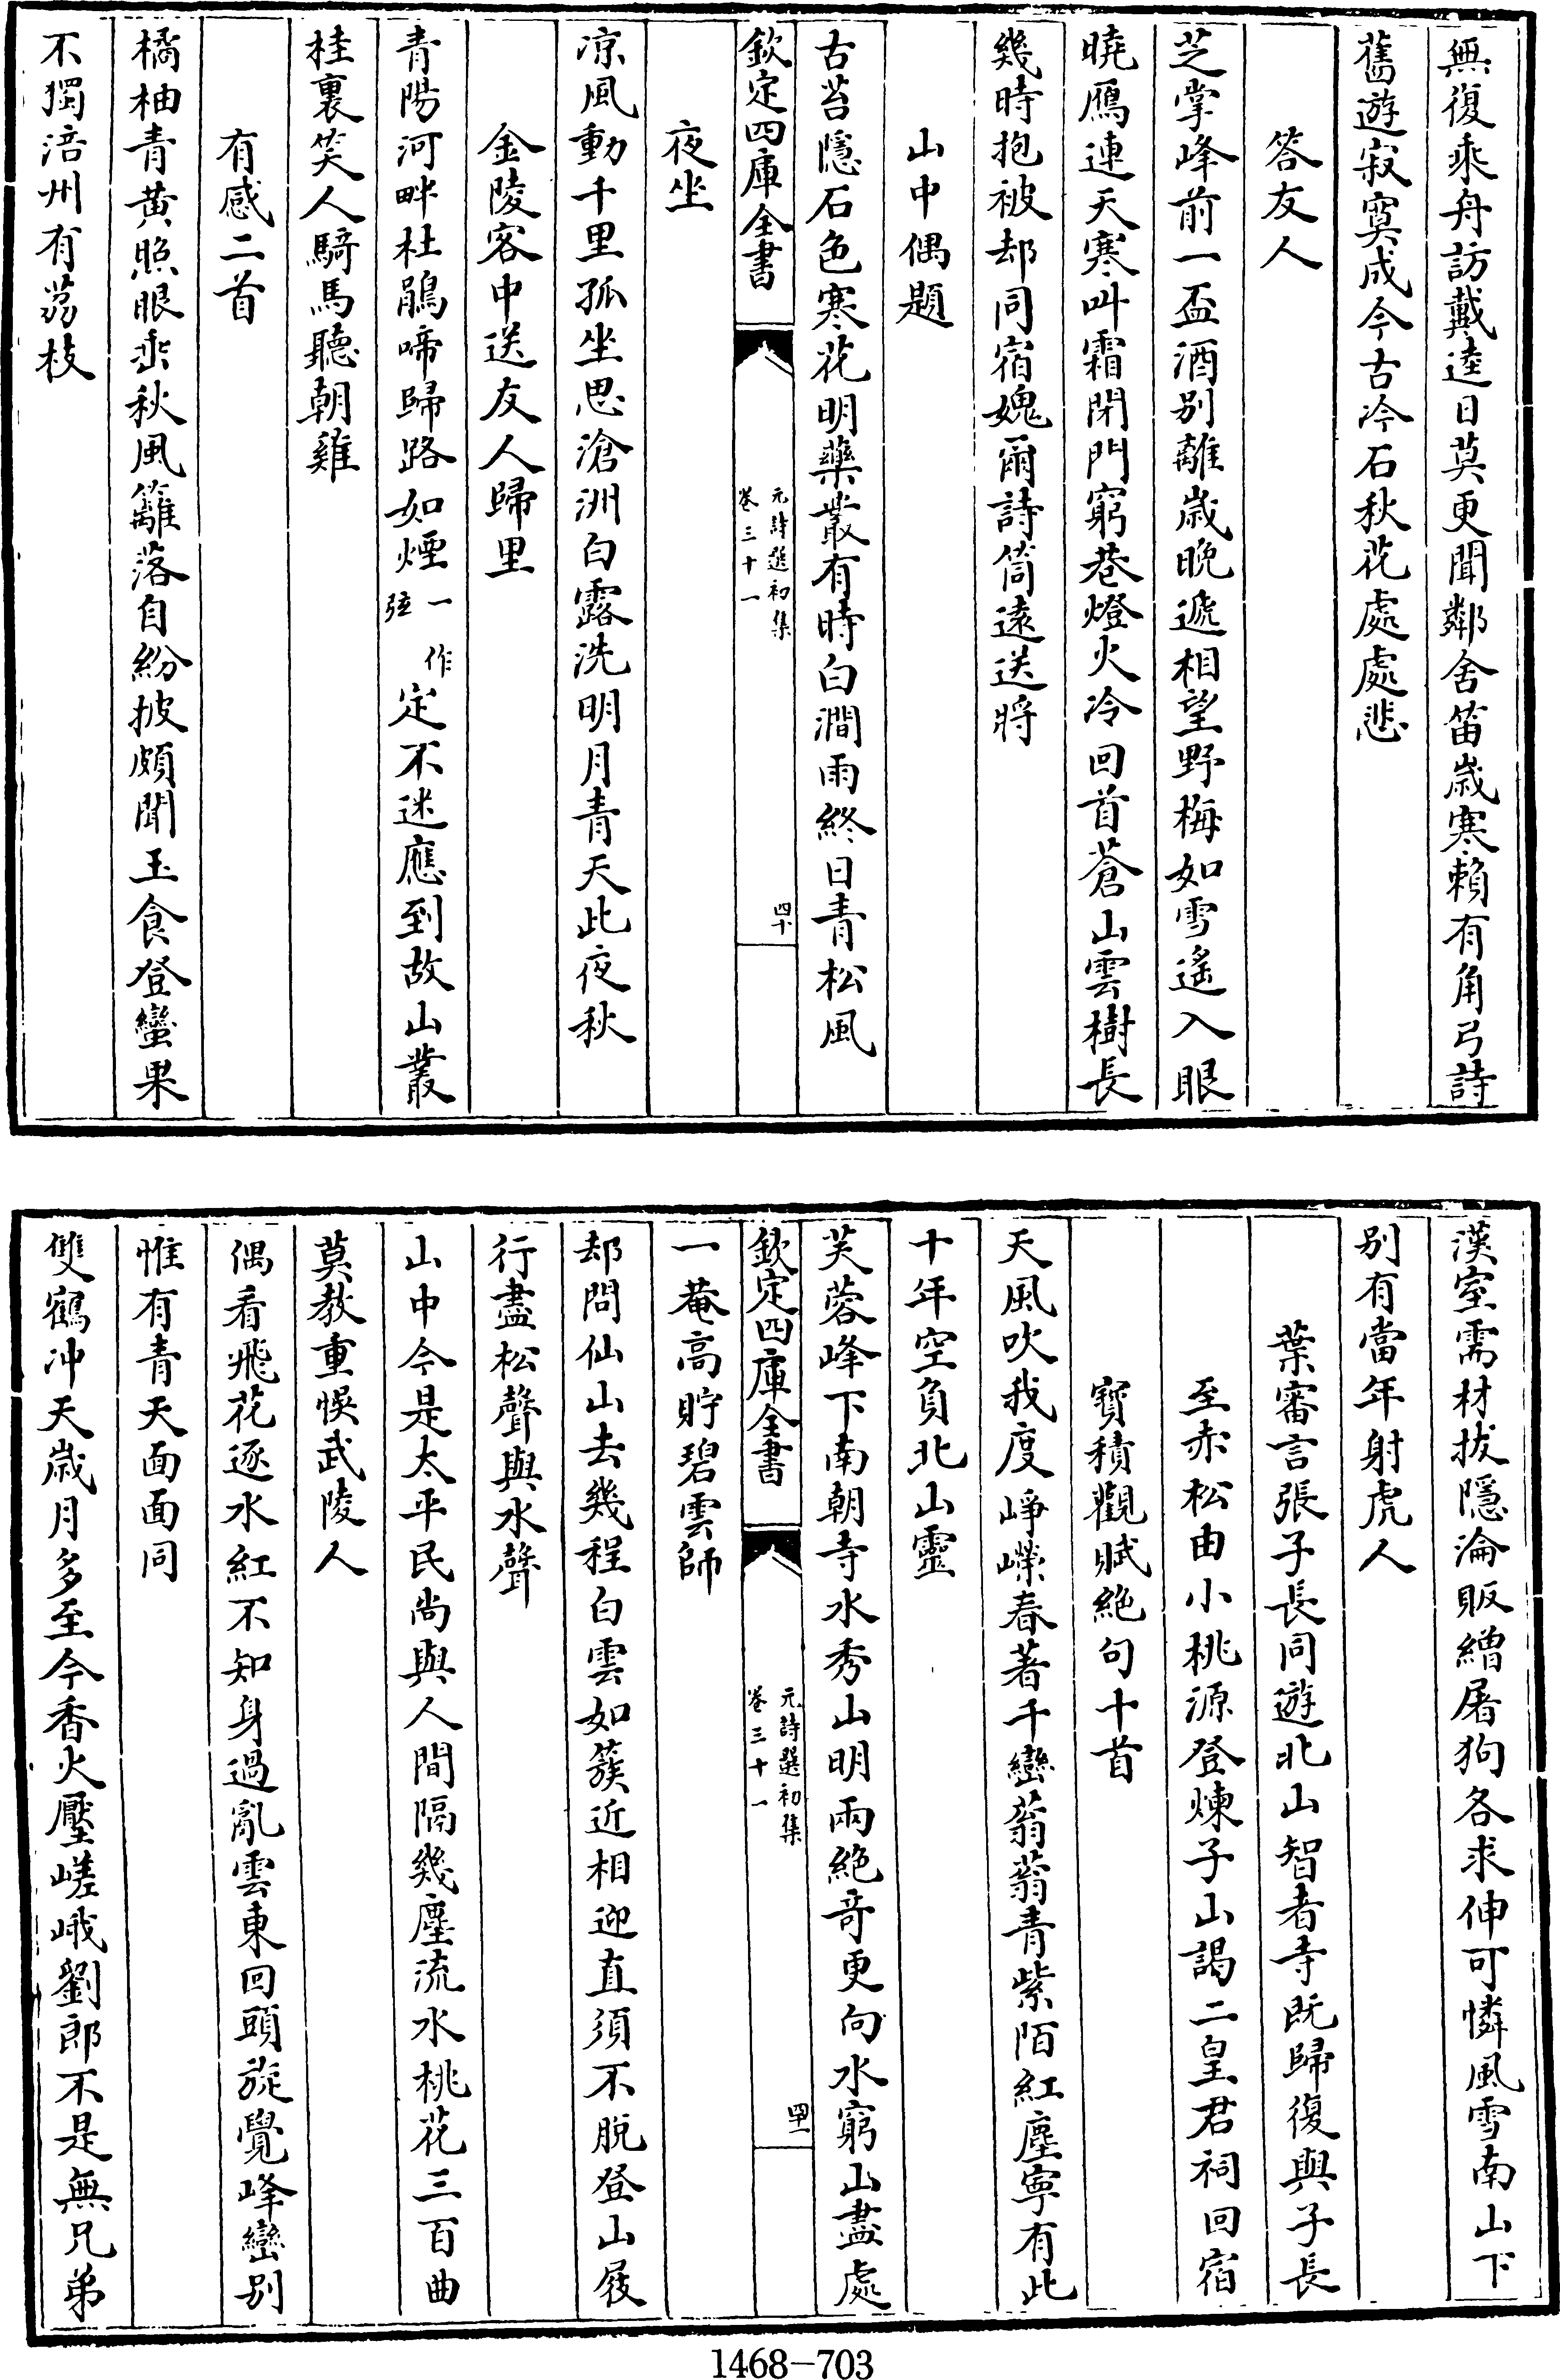 無復乘舟訪戴逵日莫更聞鄰舍笛歲寒賴有角弓詩
舊遊寂寞成今古冷石秋花處處悲
答友人
芝掌峰前一盃酒别離歲晚遞相望野梅如雪遙入眼
曉鴈連天寒叫霜閉門窮巷燈火冷回首蒼山雲樹長
幾時抱被却同宿媿爾詩筒遠送將
山中偶題
古苔隱石色寒花明藥叢有時白澗雨終日青松風
欽定四庫全書
元詩選初集
卷三十一
四十
夜坐
凉風動千里孤坐思滄洲白露洗明月青天此夜秋
金陵客中送友人歸里
青陽河畔杜鵑啼歸路如煙一作弦定不迷應到故山叢
桂裏笑人騎馬聽朝雞
有感二首
橘柚青黄照眼垂秋風籬落自紛披頗聞玉食登蠻果
不獨涪州有荔枝
漢室需材拔隱淪販繒屠狗各求伸可憐風雪南山下
别有當年射虎人
葉審言張子長同遊北山智者寺既歸復與子長
至赤松由小桃源登煉子山謁二皇君祠回宿
寶積觀賦絶句十首
天風吹我度崢嶸春著千巒蓊蓊青紫陌紅塵寧有此
十年空負北山靈
芙蓉峰下南朝寺水秀山明兩絶奇更向水窮山盡處
欽定四庫全書
元詩選初集
卷三十一
四十一
一菴高貯碧雲師
却問仙山去幾程白雲如簇近相迎直須不脱登山屐
行盡松聲與水聲
山中今是太平民尚與人間隔幾塵流水桃花三百曲
莫教重悞武陵人
偶看飛花逐水紅不知身過亂雲東回頭旋覺峰巒别
惟有青天面面同
雙鶴冲天歲月多至今香火壓嵯峨劉郎不是無兄弟
1468-703